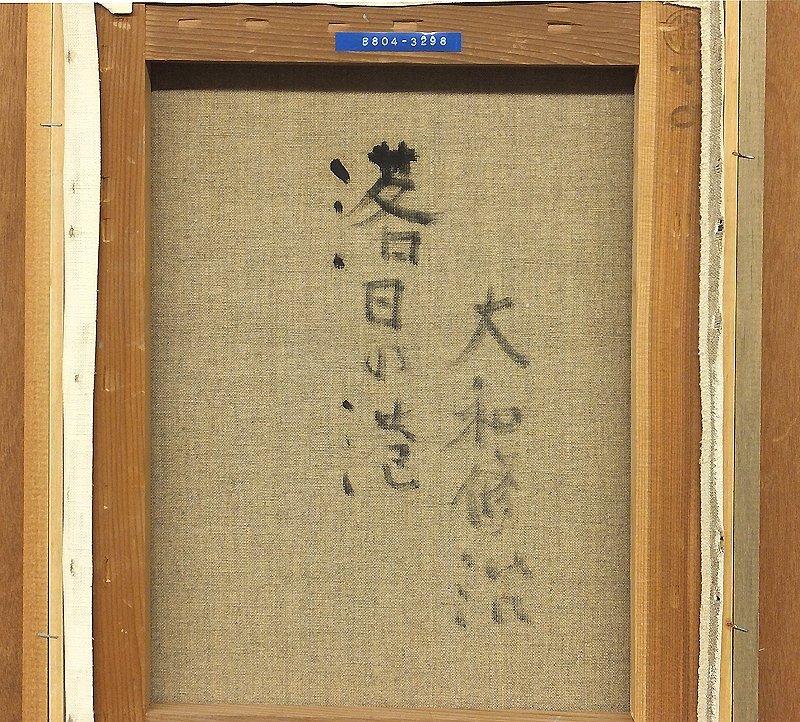 B804-3298
大和修治
落日の港